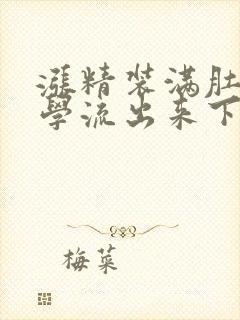 漲精装满肚
學流出来下
梅菜